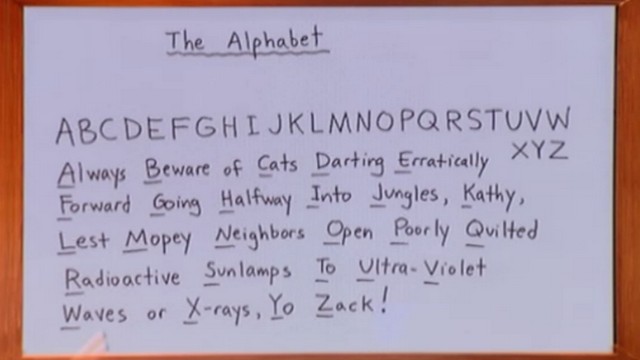 The Alphabet
ABCDEFGHIJKLMNOPQRSTUVW
XYZ
Always Beware of Cats Darting Erratically
Forward Going Halfway Into Jungles, Kathy,
Lest Mopey Neighbors Open Poorly Quilted
Radioactive Sunlamps To Ultra-Violet
Waves or X-rays, Yo Zack!